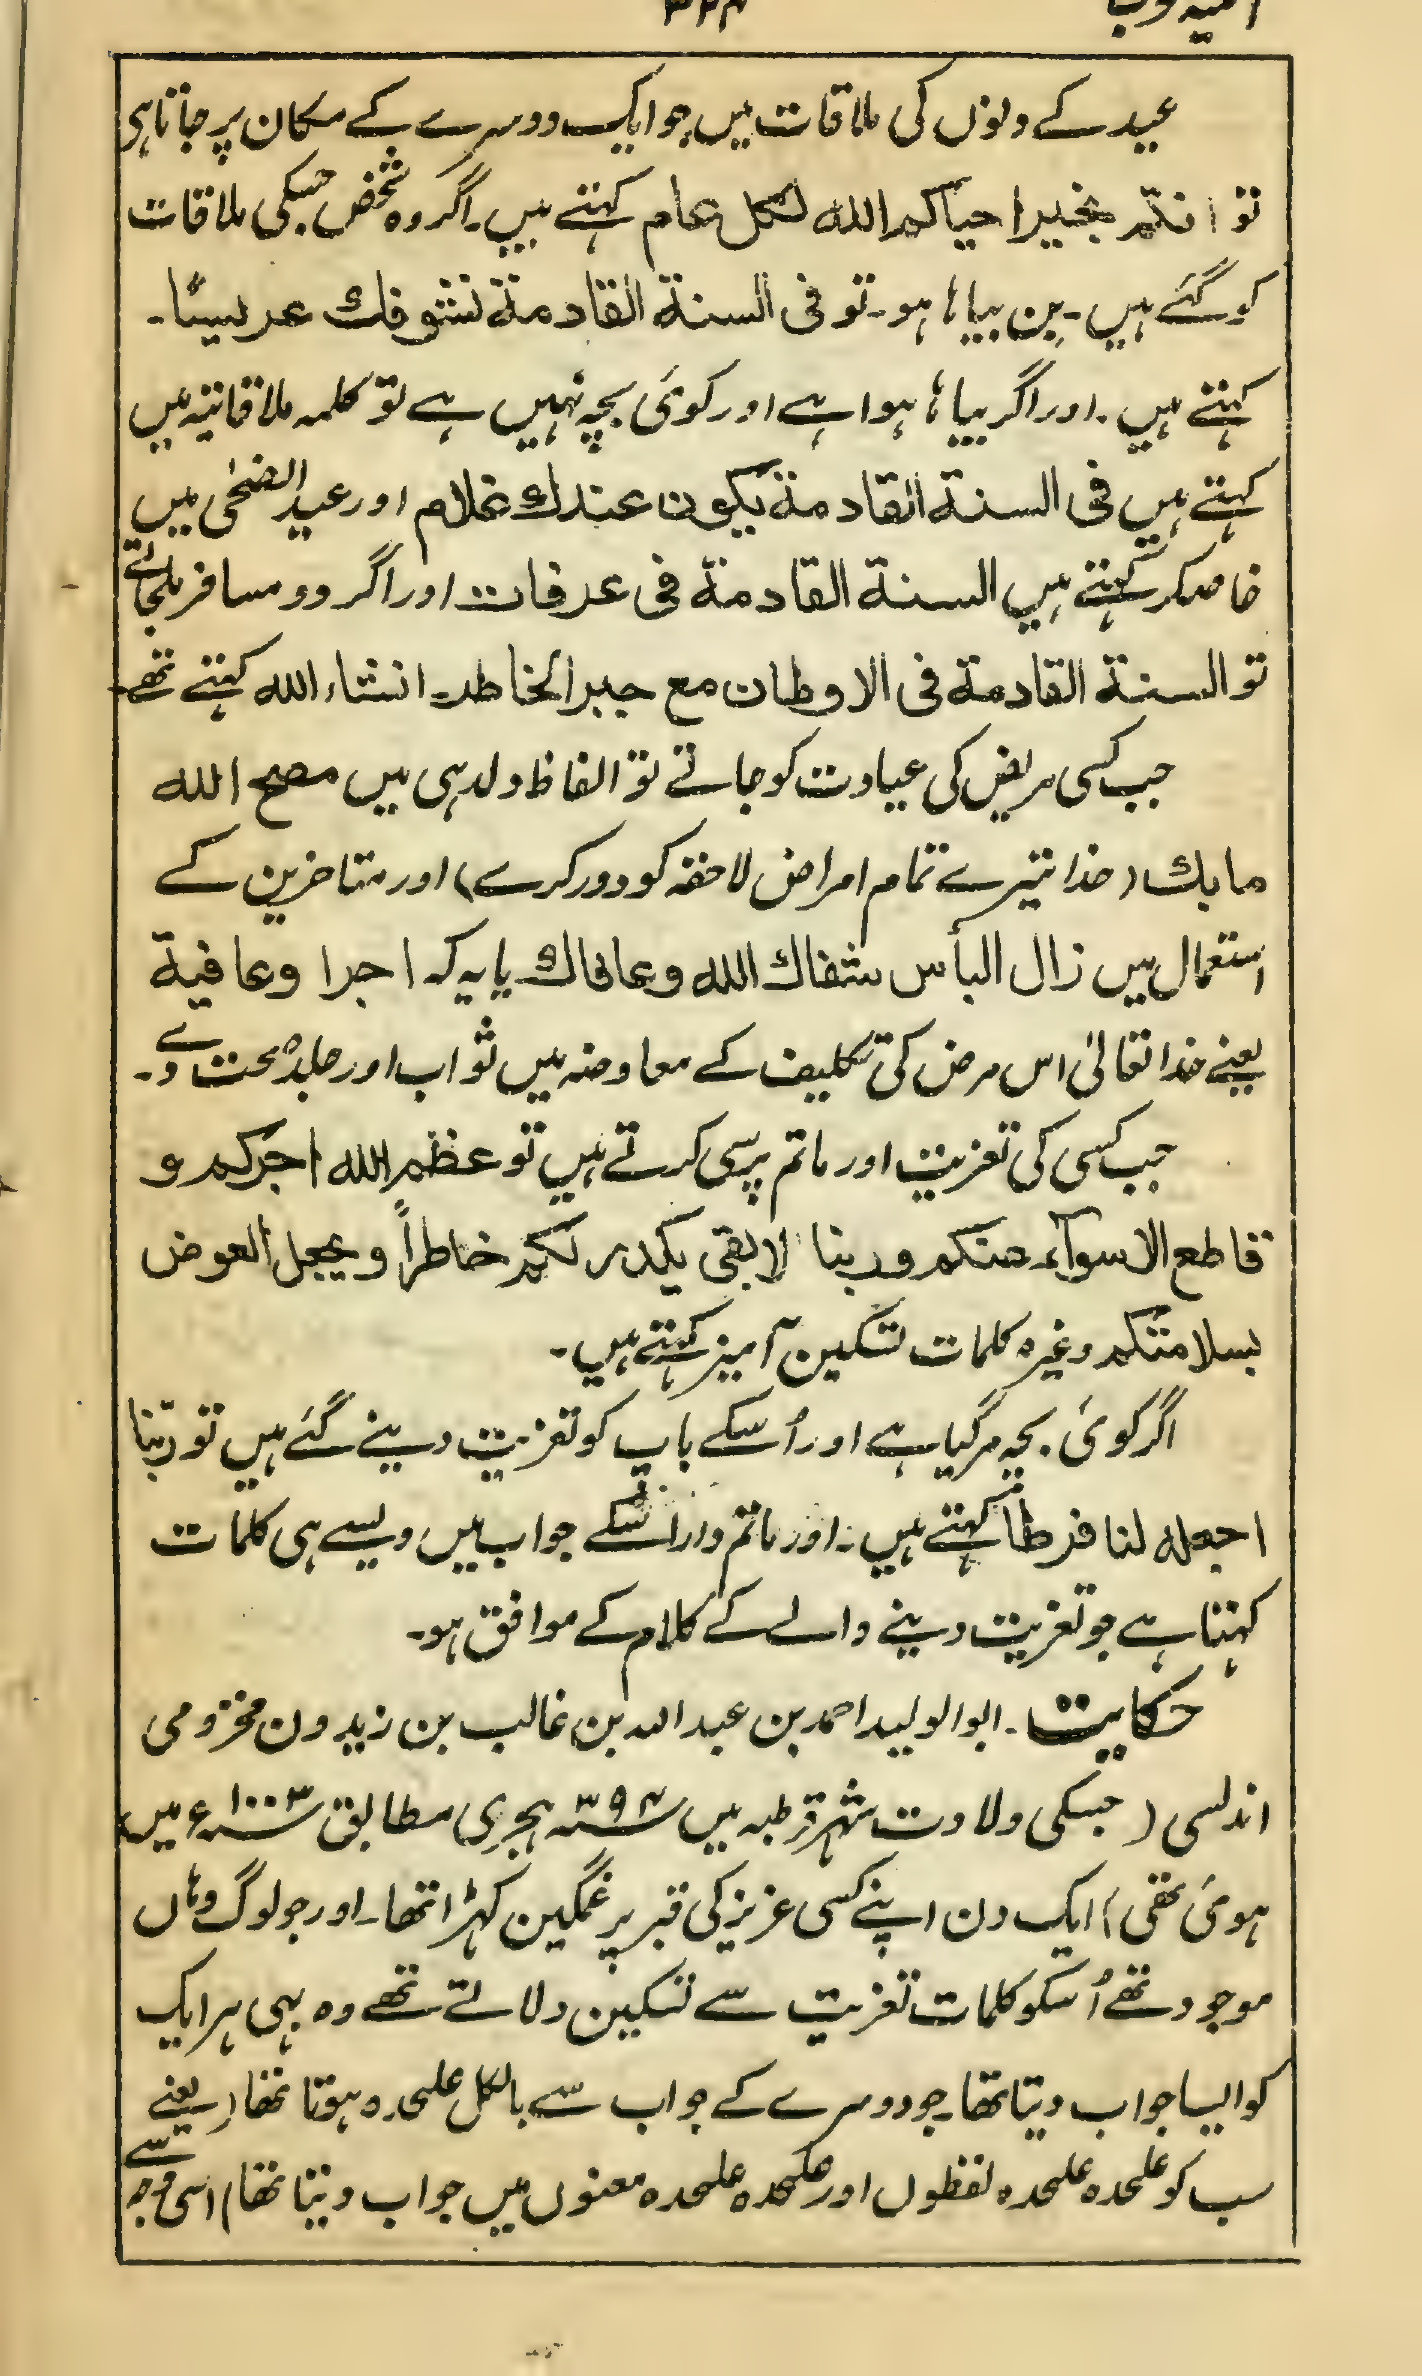 ۳۲۴
عید کے دنوں کی ملاقات میں جو ایک دوسرے کے مکان پر جاتا ہی
تو انتم بخیر احیاکم الله لکل عام کہتے ہیں۔ اگر وہ شخص جسکی ملاقات
کو گئے ہیں۔ بن بیاہا ہو۔ تو فی السنة القادمة نشوفك عریسًا۔
کہتے ہیں۔ اور اگر بیاہا ہوا ہے اور کوئی بچہ نہیں ہے تو کلمہ ملاقاتیہ میں
کہتے ہیں فی السنة القادمة یکون عندك غلام اور عید الضحٰی میں
خاصکر کہتے ہیں السنة القادمة فی عرفات اور اگر دو مسافر ملجاتے
تو السنة القادمة فی الاوطان مع جبر الخاطر۔ انشاء الله کہتے تھے
جب کسی مریض کی عیادت کو جاتے تو الفاظ دلدہی میں مصح الله
مابك (خدا تیرے تمام امراض لاحقہ کو دور کرے) اور متاخرین کے
استعمال میں زال البأس شفاك الله وعافاك یا یہ کہ اجرا وعافیة
یعنے خدا تعالیٰ اس مرض کی تکلیف کے معاوضہ میں ثواب اور جلد صحت دے۔
جب کسی کی تعزیت اور ماتم پرسی کرتے ہیں تو عظم الله اجرکم و
قاطع الاسوآء عنکم وربنا لا بقی یکدر لکم خاطراً ویجعل العوض
بسلامتکم وغیرہ کلمات تسکین آمیز کہتے ہیں۔
اگر کوئی بچہ مر گیا ہے اور اُسکے باپ کو تعزیت دینے گئے ہیں تو ربّنا
اجعله لنا فرطاً کہتے ہیں۔ اور ماتم دار اسکے جواب میں ویسے ہی کلمات
کہتا ہے جو تعزیت دینے والے کے کلام کے موافق ہو۔
حکایت۔ ابوالولید احمد بن عبد اللہ بن غالب بن زیدون مخزومی
اندلسی (جسکی ولادت شہر قرطبہ میں ۳۹۴ ہجری مطابق ۱۰۰۳ء میں
ہوئی تھی) ایک دن اپنے کسی عزیز کی قبر پر غمگین کہڑا تھا۔ اور جو لوگ وہاں
موجود تھے اُسکو کلمات تعزیت سے تسکین دلاتے تھے وہ بہی ہر ایک
کو ایسا جواب دیتا تھا۔ جو دوسرے کے جواب سے بالکل علحدہ ہوتا تھا (یعنے
سب کو علحدہ علحدہ لفظوں اور علحدہ علحدہ معنوں میں جواب دیتا تھا) اسی وجہ سے